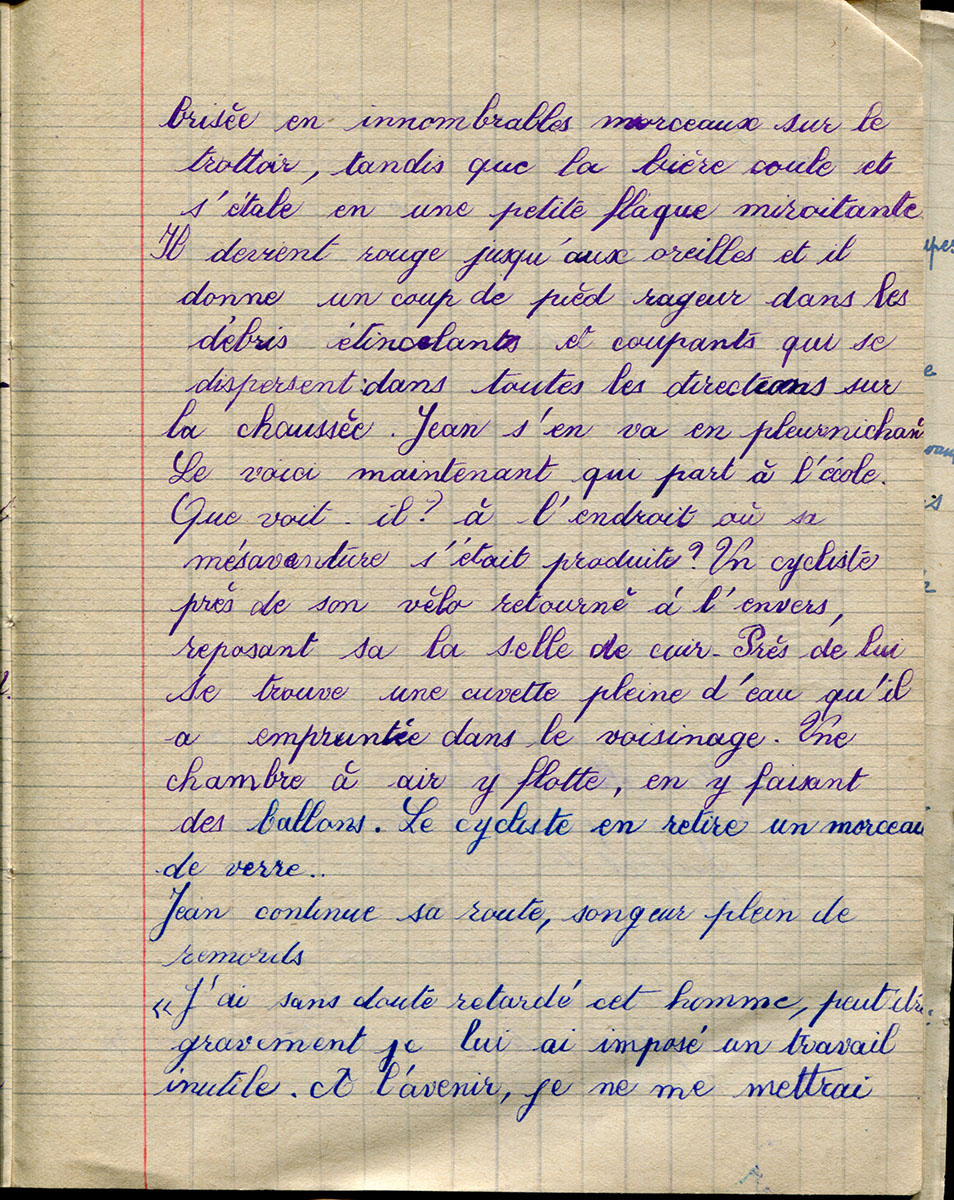 brisée en innombrables morceaux sur le
trottoir, tandis que la bière coule et
s'étale en une petite flaque miroitante.
Il devient rouge jusqu'aux oreilles et il
donne un coup de pied rageur dans les
débris étincelants et coupants qui se
dispersent dans toutes les directions sur
la chaussée. Jean s'en va en pleurnichan
Le voici maintenant qui part à l'école.
Que voit-il? à l'endroit où sa
mésaventure s'était produite? Un cycliste
près de son vélo retourné à l'envers,
reposant sa la selle de cuir. Près de lui
se trouve une cuvette pleine d'eau qu'il
a empruntée dans le voisinage. Une
chambre à air y flotte, en y faisant
des ballons. Le cycliste en retire un morceau
de verre..
Jean continue sa route, songeur plein de
remords
« J'ai sans doute retardé cet homme, peut être
gravement je lui ai imposé un travail
inutile. A l'avenir, je ne me mettrai